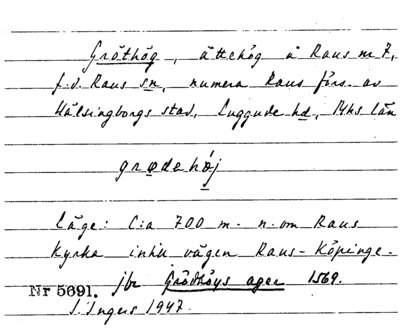 Gröthög, ättehög å Raus nr 7,
f.d. Raus sn, numera Raus förs. av
Hälsingborgs stad, Luggude hd, Mhs län
grødehøj
Läge: C:a 700 m. n. om Raus
Kyrka intill vägen Raus-Köpinge.
Nr 5691. jbr Grödhöys ager 1569.
I. Ingers 1947.